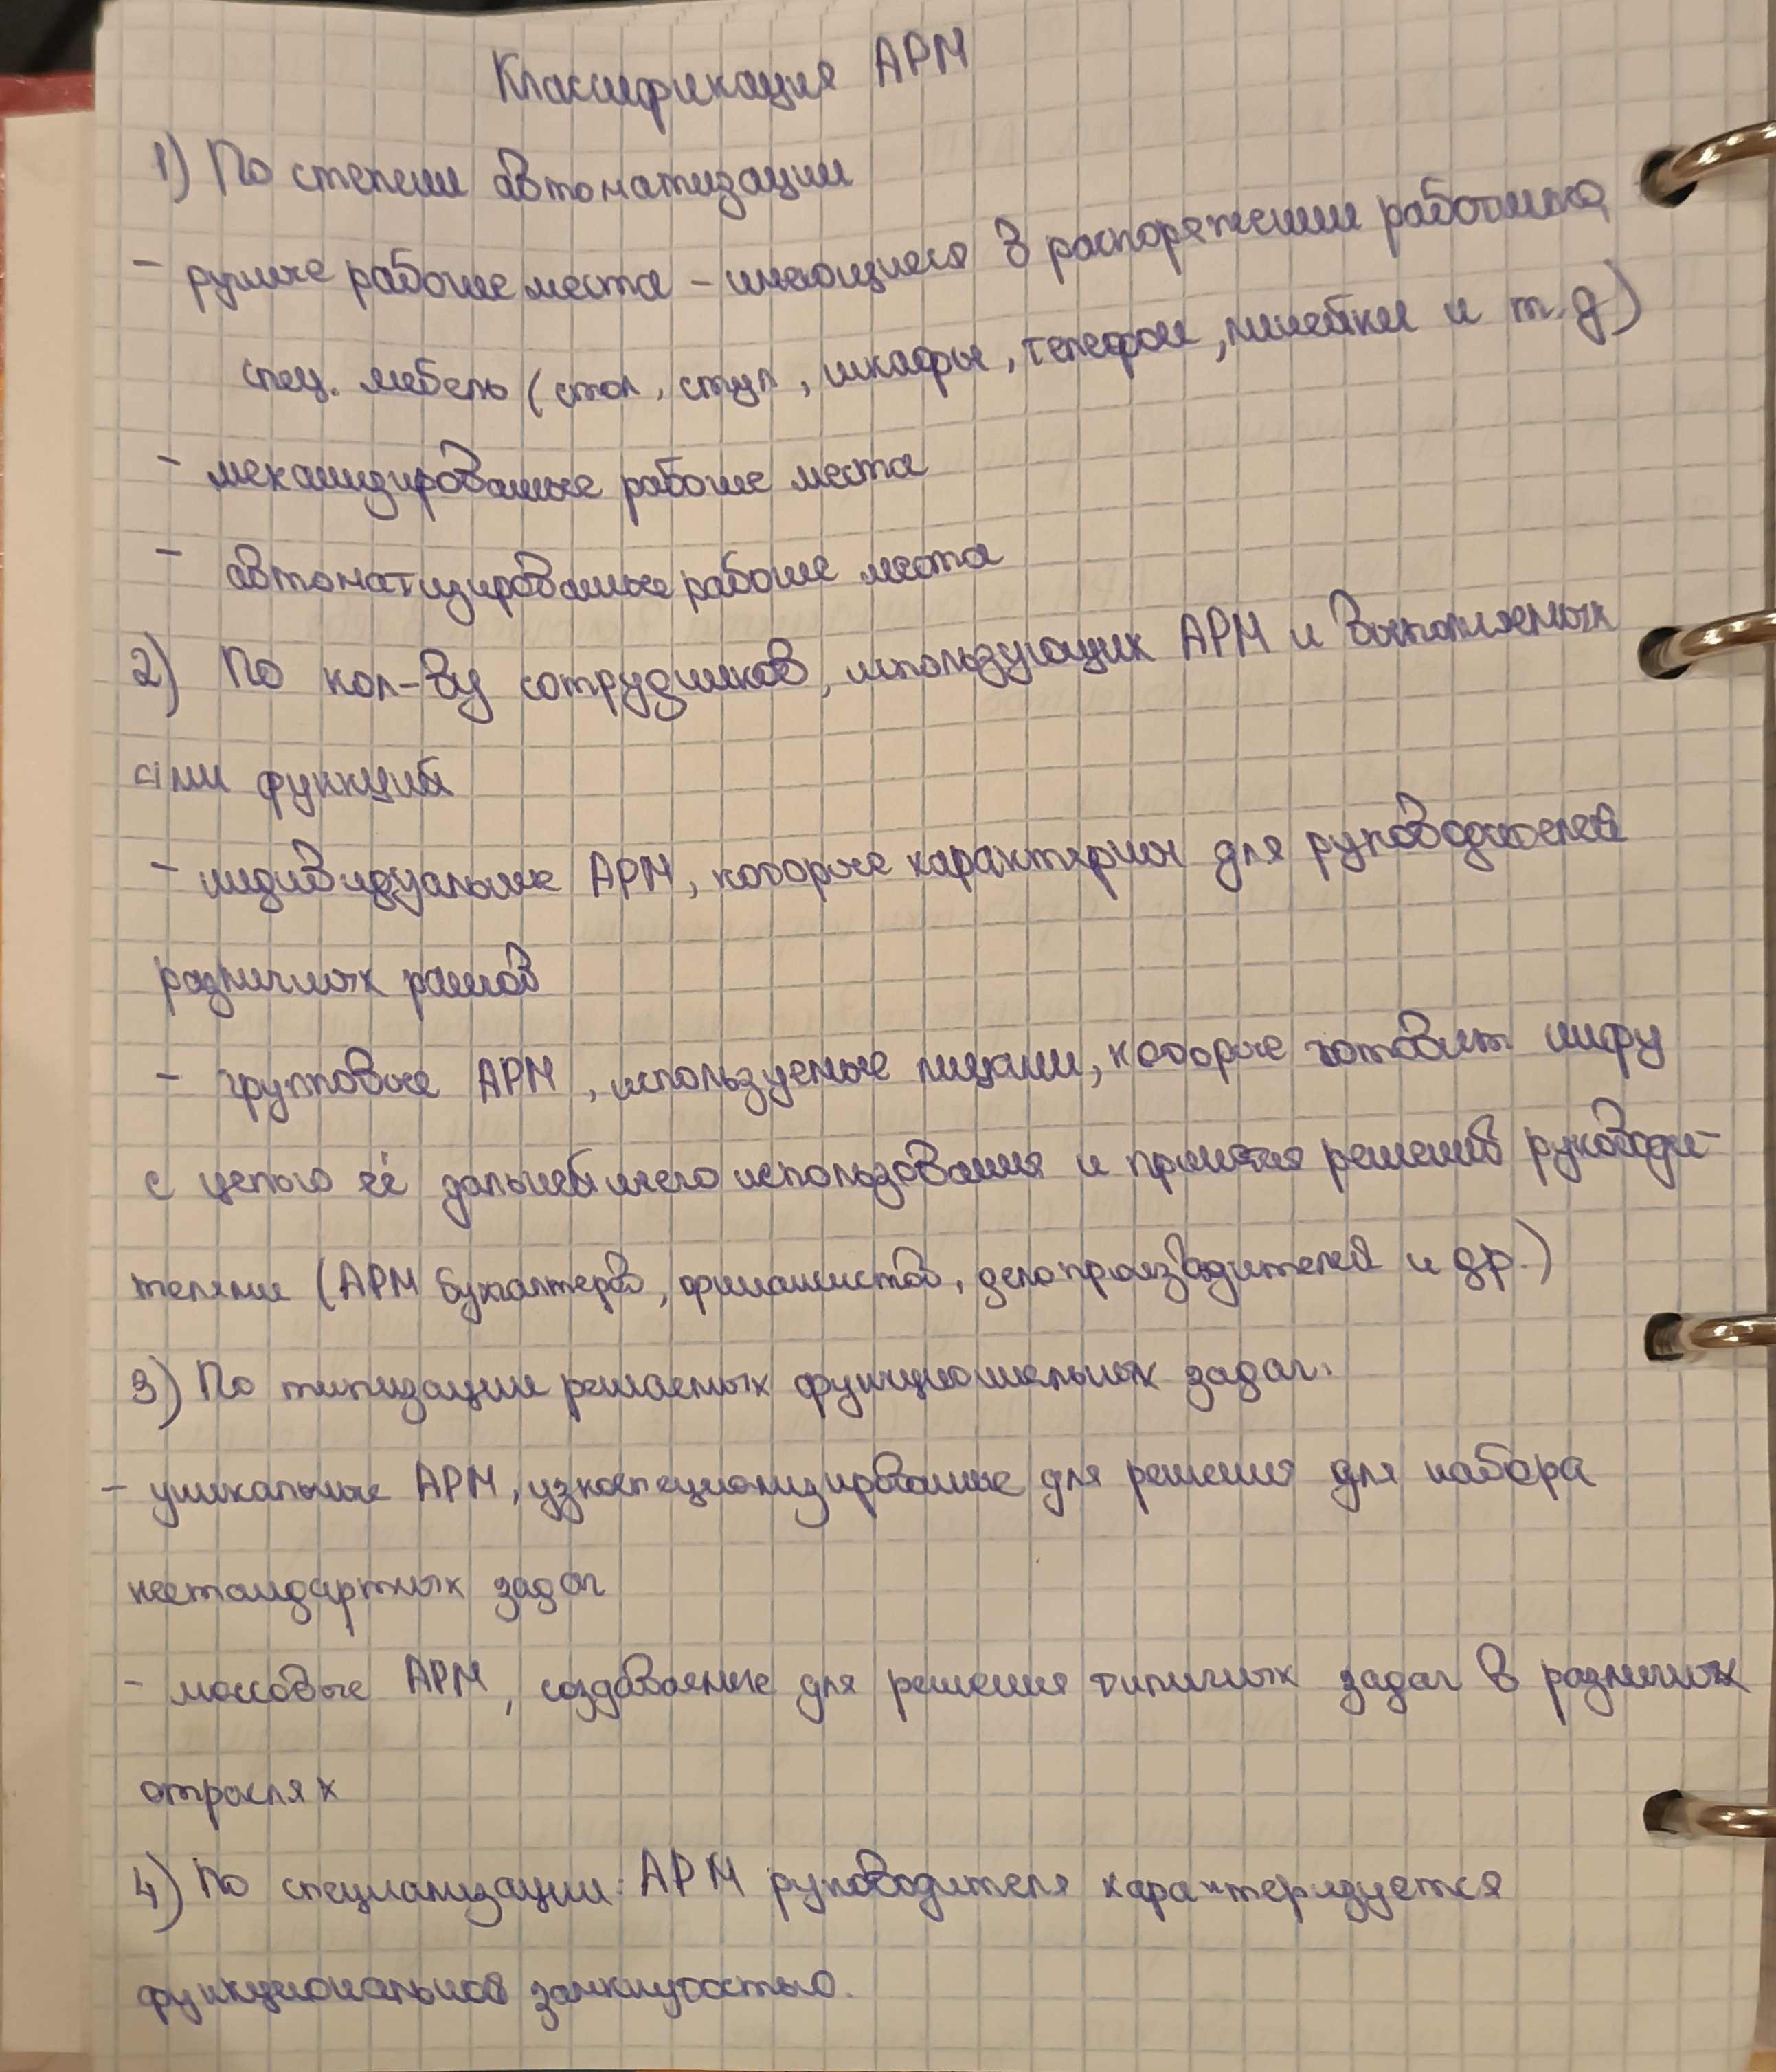 Классификация АРМ
1) По степени автоматизации
- ручные рабочие места - имеющиеся в распоряжении работника
спец. мебель (стол, стул, шкафы, телефон, линейки и т.д)
- механизированные рабочие места
- автоматизированные рабочие места
2) По кол-ву сотрудников, использующих АРМ и выполняемых
ими функций
- индивидуальные АРМ, которые характерны для руководителей
различных рангов
- групповые АРМ, используемые лицами, которые готовят инфу
с целью её дальнейшего использования и принятия решений руководи-
телями (АРМ бухгалтеров, финансистов, делопроизводителей и др.)
3) По типизации решаемых функциональных задач:
- уникальные АРМ, узкоспециализированные для решения для набора
нестандартных задач
- массовые АРМ, создаваемые для решения типичных задач в различных
отраслях
4) По специализации: АРМ руководителя характеризуется
функциональной замкнутостью.